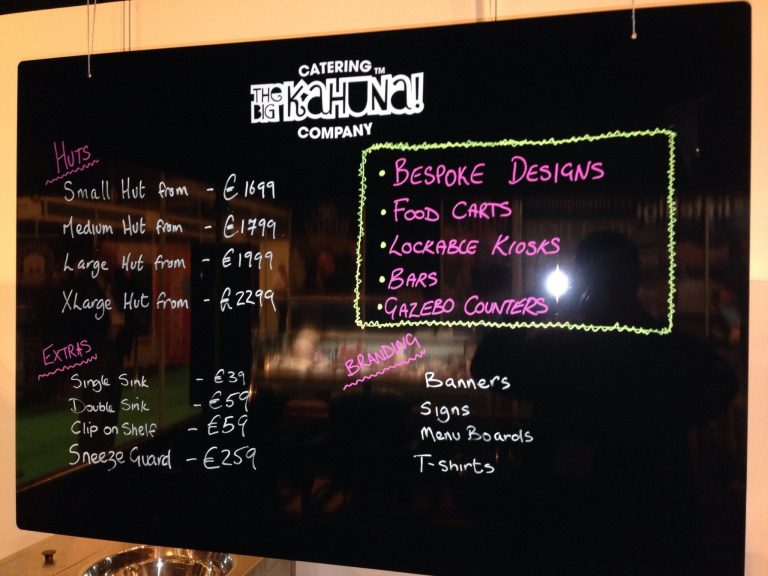 CATERING ™
THE BIG KAHUNA!
COMPANY
HUTS
Small Hut from - € 1699
Medium Hut from - € 1799
Large Hut from - € 1999
XLarge Hut from - £ 2299
EXTRAS
Single Sink - € 39
Double Sink - € 59
Clip on Shelf - € 59
Sneeze Guard - € 259
• BESPOKE DESIGNS
• FOOD CARTS
• LOCKABLE KIOSKS
• BARS
• GAZEBO COUNTERS
BRANDING
Banners
Signs
Menu Boards
T-shirts